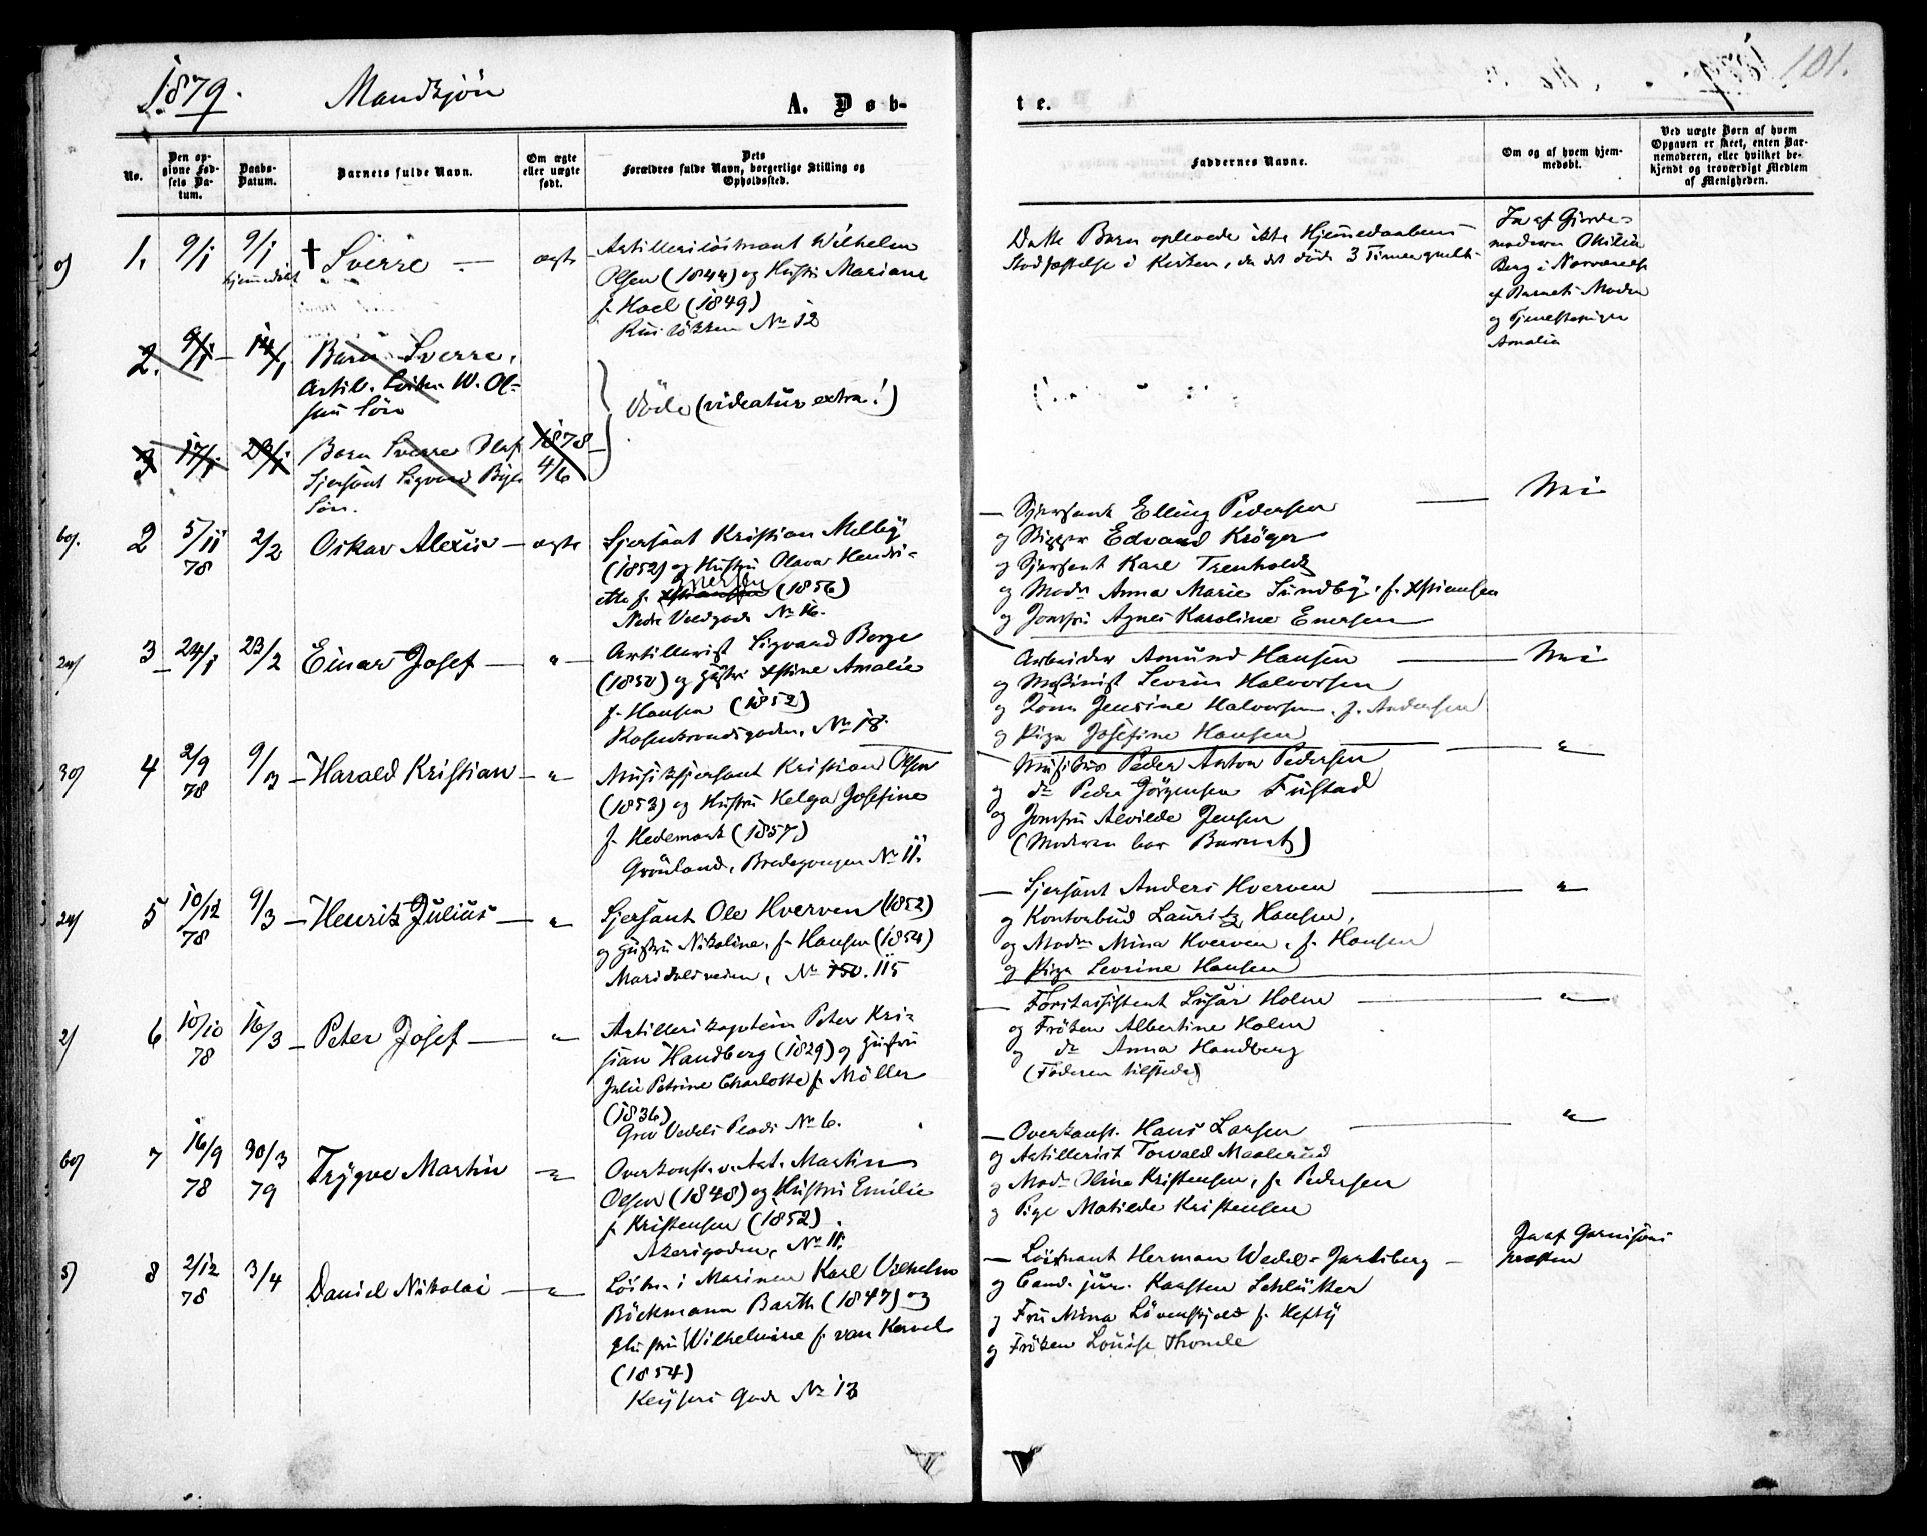 1879.
Mandkjön
A. Døb-
te.
101.
No.
Den op-
givne Fød-
sels Da-
tum.
Daabs-
Datum.
Barnets fulde Navn.
Om ægte
eller uægte
født.
Dets
Forældres fulde Navn, borgerlige Stilling og
Opholdssted.
Faddernes Navne.
Om og af hvem hjem-
medøbt.
Ved uægte Børn af hvem
Opgaven er skeet, enten Bar-
nemoderen, eller hvilket be-
kjendt og troværdigt Medlem
af Menigheden.
1. 9/1 9/1 † Sverre — ægte
hjemmedøbt
Artilleriløitnant Wilhelm
Olsen (1844) og Hustru Mariane
f. Hoel (1849)
Ruselökken No 12
Dette Barn oplevede ikke Hjemmedaabens
Stadfæstelse i Kirken, da det døde 3 Timer gmlt.
Ja af Gjorde-
moderen Otilia
Berg i Nærværelse
af Barnets Moder
og Tjenestepigen
Amalia
2. 9/1 14/1 Barn Sverre,
Artil. Löitn. W. Ol-
sens Sön
Döde (videatur extra!)
3 17/1 23/1 Barn Sverre Olaf 1878
Sjersant Sigvard Byes 4/6
Sön.
6o). 2 5/11 78 2/2 Oskar Alexis — ægte
Sjersant Kristian Melby
(1852) og Hustru Olava Hendri-
ette f. Enersen (1856)
Nedre Voldgade No 16.
— Sjersant Elling Pedersen — Nei
og Bygger Edvard Kröger
og Sjersant Karl Trenholdt
og Mad. Anna Marie Sundby, f. Xstiansen
og Jomfru Agnes Karoline Enersen
2a) 3 24/1 23/2 Einar Josef — " —
Artillerist Sigvard Berge
(1850) og Hustru Xstine Amalie
f. Hansen (1852)
Rosenkrandsgaden, No 18.
Arbeider Amund Hansen — Nei
og Maskinist Severin Halvorsen
og Kone Jensine Halvorsen, f. Andersen
og Pige Josefine Hansen
3o) 4 2/9 78 9/3 — Harald Kristian — " —
Musiksjersant Kristian Olsen
(1853) og Hustru Helga Josefine
f. Hedemark (1857)
Grönland, Bredegangen No 11.
— Musikus Peder Anton Pedersen — "
og do Peder Jörgensen Fustad
og Jomfru Alvilde Jensen
(Moderen bar Barnet)
2a) 5 10/12 78 9/3 — Henrik Julius — " —
Sjersant Ole Hverven (1852)
og Hustru Nikoline, f. Hansen (1854)
Maridalsveien, No 150. 115
— Sjersant Anders Hverven — "
og Kontorbud Lauritz Hansen,
og Mad. Mina Hverven, f. Hansen
og Pige Severine Hansen
2) 6 10/10 78 16/3 — Peter Josef — " —
Artillerikaptein Peter Kri-
stian Handberg (1829) og Hustru
Julie Petrine Charlotte f. Möller
(1836)
Grev Vedels Plads No 6.
— Forstassistent Lusar Holm — "
og Fröken Albertine Holm
og do Anna Handberg
(Faderen tilstede)
6o) 7 16/9 78 30/3 79 Trygve Martin — " —
Overkonst. v. Art. Martin
Olsen (1848) og Hustru Emilie
f. Kristensen (1852)
Akersgaden, No 11.
— Overkonst. Hans Larsen — "
og Artillerist Torvald Maalerud
og Mad. Olina Kristensen, f. Pedersen
og Pige Matilde Kristensen
5) 8 2/12 78 3/4 Daniel Nikolai — " —
Löitn. i Marinen Karl Vilhelm
Böckmann Barth (1847) og
Hustru Wilhelmine f. van Kervel
(1854)
Keysers Gade No 13
— Löitnant Herman Wedel-Jarlsberg —
og Cand. jur. Karsten Schlütter
og Fru Mina Lövenskjold f. Hefty
og Fröken Louise Thomle
Ja af Garnisons
præsten